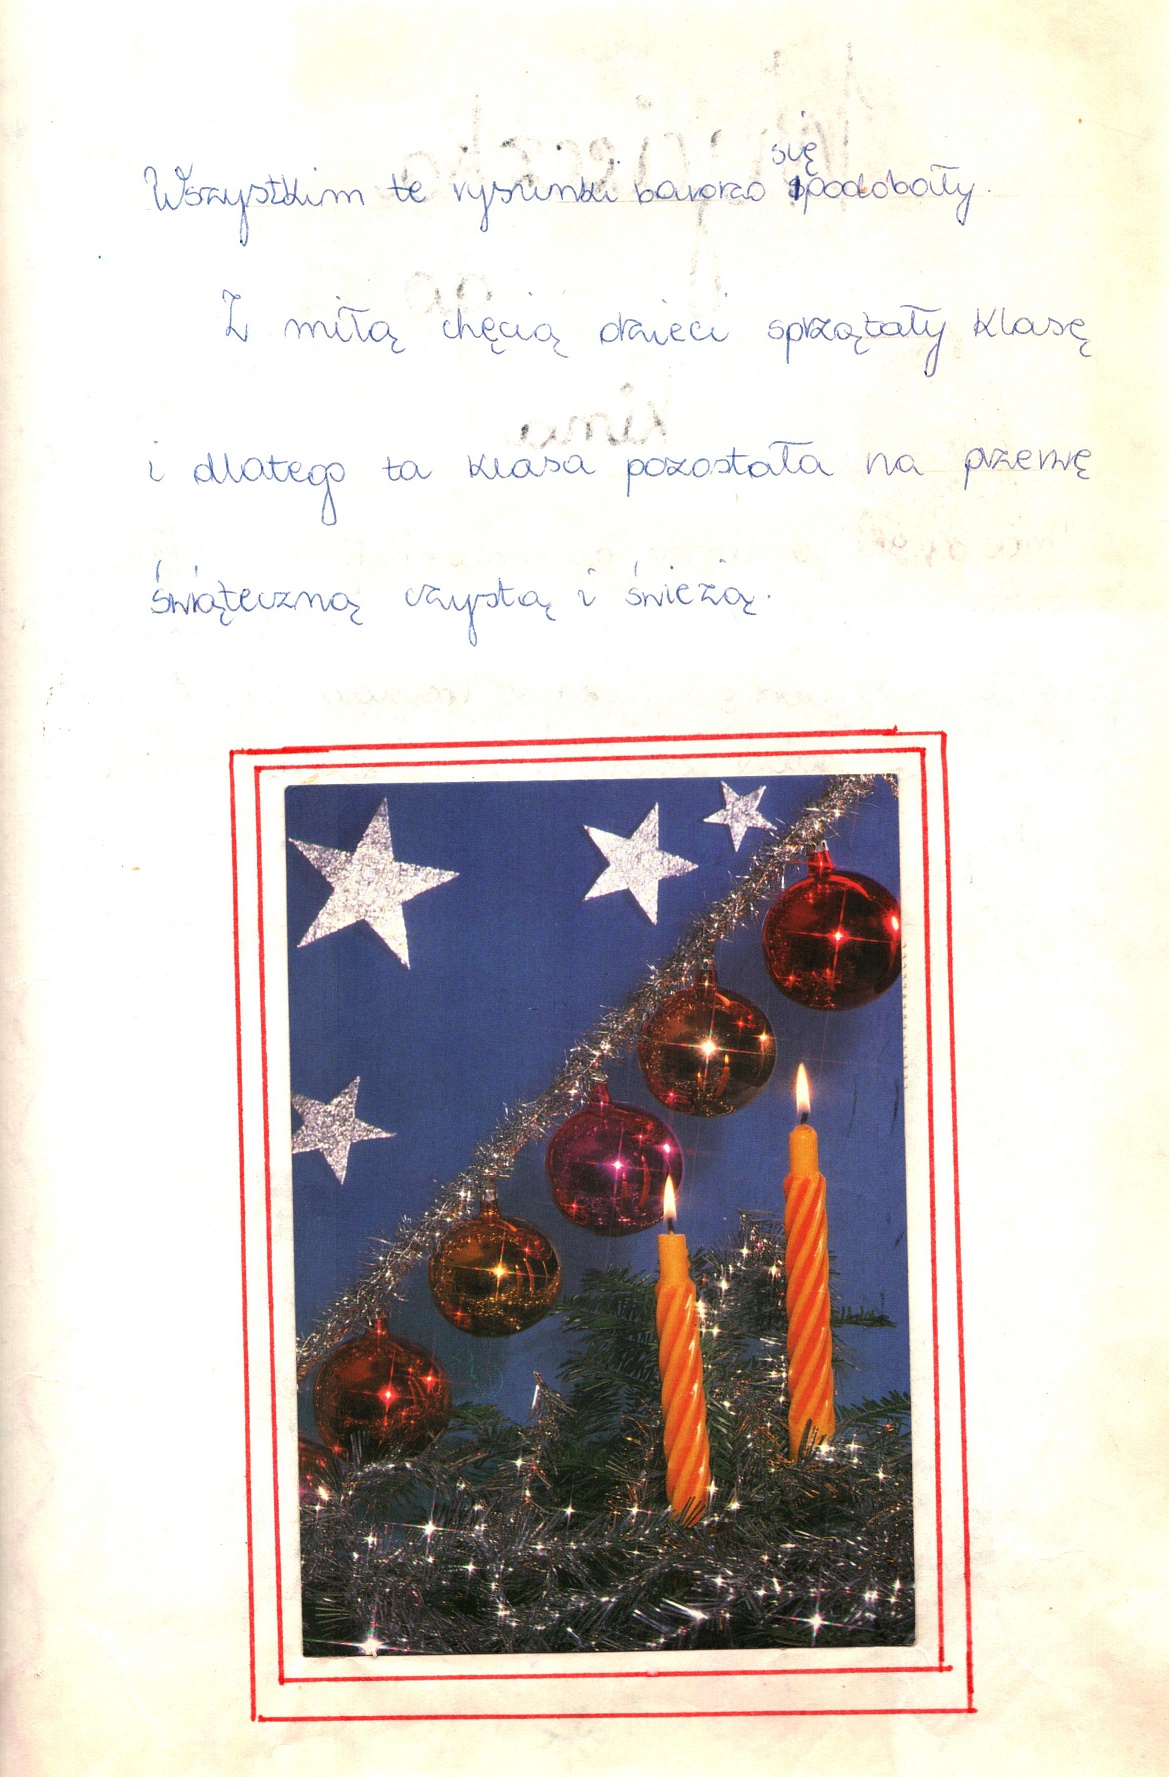 Wszystkim te rysunki bardzo się podobały.
Z miłą chęcią dzieci sprzątały klasę
i dlatego ta klasa pozostała na przerwę
świąteczną czystą i świeżą.